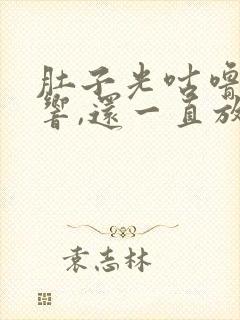 肚子光咕嚕
響,還一直放
袁志林